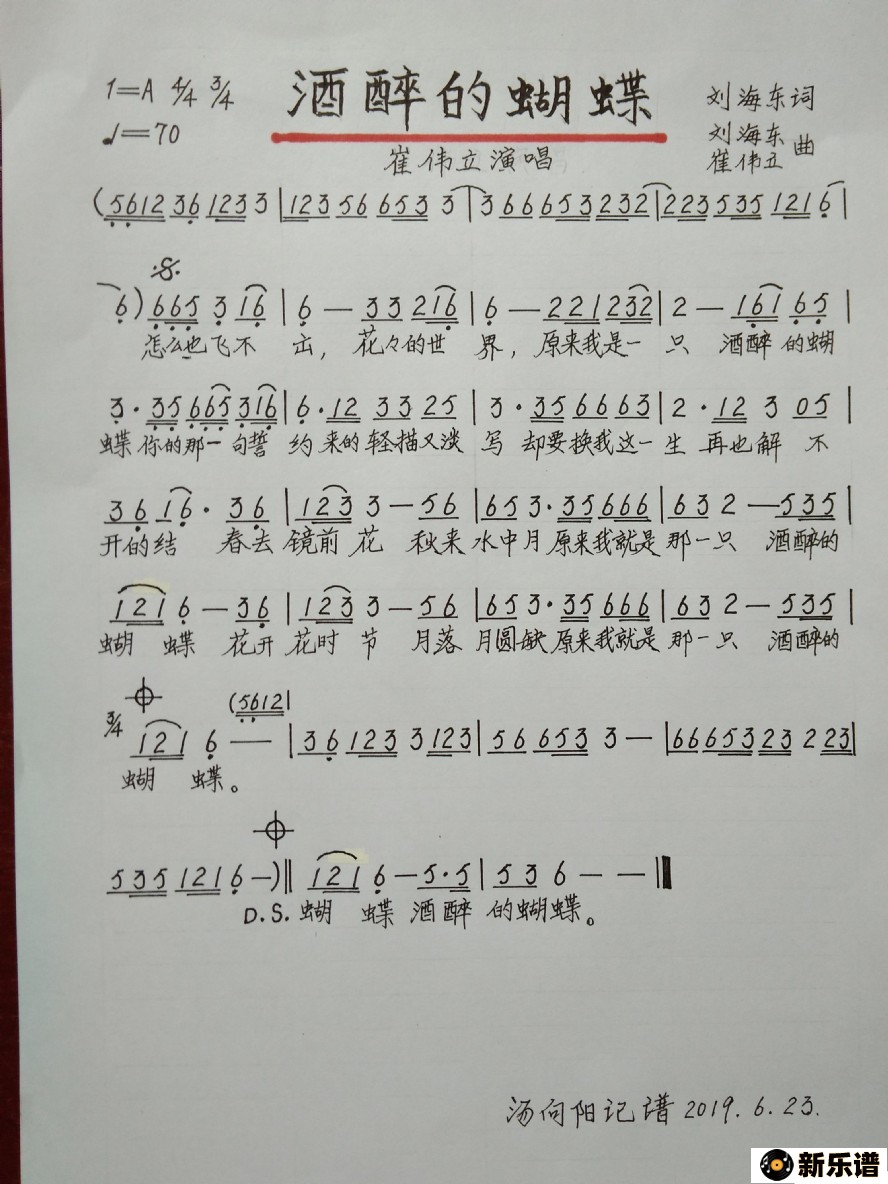 1=A 4/4 3/4 酒醉的蝴蝶 刘海东词
♩=70 刘海东 崔伟立 曲
崔伟立演唱
(5612 36 1233 3 | 123 56 653 3 | 3 666532 32 | 223535 121 6 |
6) 665 3 16 | 6 — 33 216 | 6 — 221232 | 2 — 161 65 |
怎么也飞不 出, 花々的世 界, 原来我是一 只 酒醉的蝴
3 · 35 665 316 | 6 · 12 33 25 | 3 · 35 6663 | 2 · 12 3 05 |
蝶你的那一句誓 约 来的轻描又淡 写 却要换我这一生 再也解 不
36 16 · 36 | 123 3 — 56 | 653 · 35666 | 632 — 535 |
开的结 春去 镜前 花 秋来 水中月原来我就是 那一只 酒醉的
121 6 — 36 | 123 3 — 56 | 653 · 35666 | 632 — 535 |
蝴 蝶 花开 花时 节 月落 月圆缺原来我就是 那一只 酒醉的
(5612 |
3/4 121 6 — | 36 123 3 123 | 56 653 3 — | 66653 23 223 |
蝴 蝶。
535 121 6 — ) || 121 6 — 5·5 | 536 — — ||
D.S. 蝴 蝶 酒醉 的蝴蝶。
汤向阳记谱 2019.6.23.
新乐谱